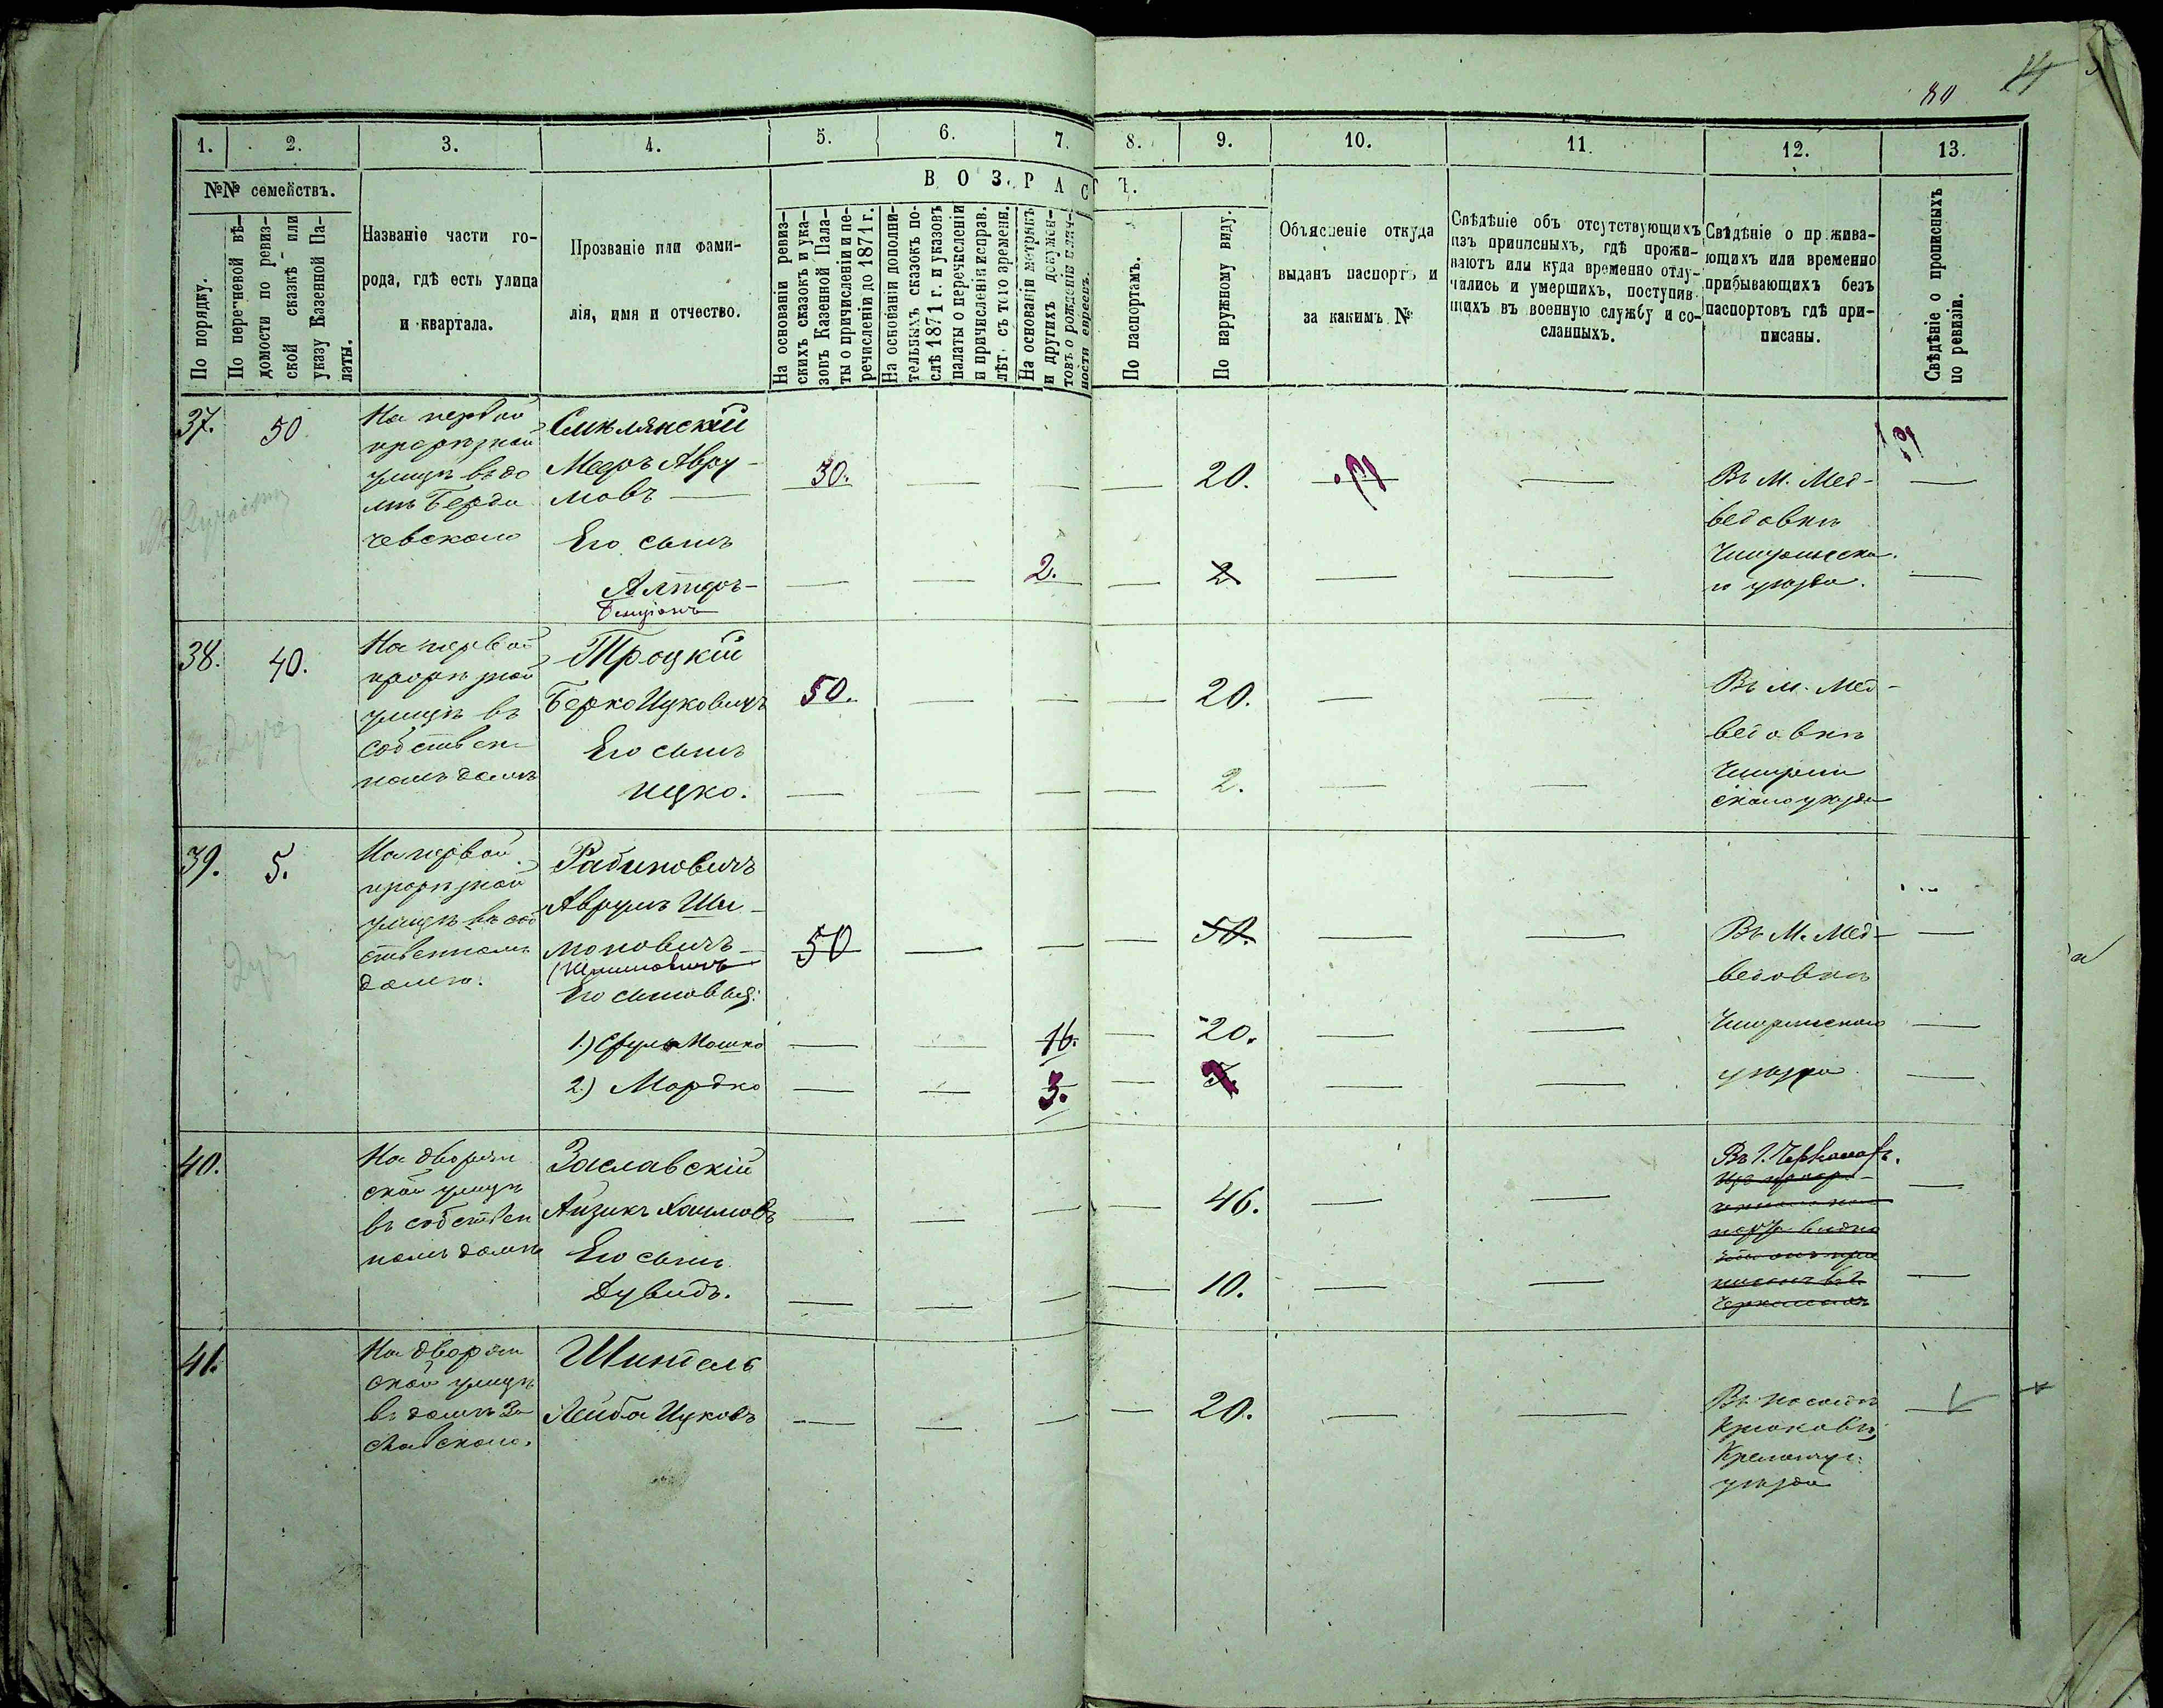 80 14
1. 2. 3. 4. 5. 6. 7. 8. 9. 10. 11. 12. 13.
№№ семействъ.
По порядку.
По перечневой вѣ-
домости по ревиз-
ской сказкѣ или
указу Казенной Па-
латы.
Названіе части го-
рода, гдѣ есть улица
и квартала.
Прозваніе или фами-
лія, имя и отчество.
ВОЗРАСТЪ.
На основаніи ревиз-
скихъ сказокъ и ука-
зовъ Казенной Пала-
ты о причисленіи и пе-
речисленіи до 1871 г.
На основаніи дополни-
тельныхъ сказокъ по-
слѣ 1871 г. и указовъ
палаты о перечисленіи
и причисленіи исправ.
лѣт. съ того времени.
На основаніи метрикъ
и другихъ докумен-
товъ о рожденіи и лич-
ности евреевъ.
По паспортамъ.
По наружному виду.
Объясненіе откуда
выданъ паспортъ и
за какимъ №
Свѣдѣніе объ отсутствующихъ
изъ приписныхъ, гдѣ прожи-
ваютъ или куда временно отлу-
чились и умершихъ, поступив-
шихъ въ военную службу и со-
сланныхъ.
Свѣдѣніе о прожива-
ющихъ или временно
прибывающихъ безъ
паспортовъ гдѣ при-
писаны.
Свѣдѣніе о прописныхъ
по ревизіи.
37. 50
На первой
прорѣзной
улицѣ въ до
мѣ Берди
чевскаго
Смѣлянскій
Мееръ Авру-
мовъ
30. 20.
Его сынъ
Алтеръ-
Бенціонъ
2. 2
Въ М. Мед-
ведовкѣ
Чигиринска-
го уѣзда.
38. 40.
На первой
прорѣзной
улицѣ въ
собствен-
номъ домѣ
Троцкій
Берко Ицковичъ
50. 20.
Его сынъ
Ицко.
2.
Въ М. Мед-
ведовкѣ
Чигирин
скаго уѣзда
39. 5.
На первой
прорѣзной
улицѣ въ соб
ственномъ
домѣ.
Рабиновичъ
Аврумъ Ши-
моновичъ
50 50.
Его сыновья:
1.) Сруль Мошко
16. 20.
2.) Мордко
3.
Въ М. Мед-
ведовкѣ
Чигиринскаго
уѣзда
40.
На дворян
ской улицѣ
въ собствен
номъ домѣ
Заславскій
Айзикъ Хаимовъ
46.
Его сынъ
Дувидъ.
10.
Въ г. Черкасахъ.
Черкассахъ
41.
На дворян
ской улицѣ
въ домѣ За
славскаго.
Шинкель
Лейба Ицковъ
20.
Въ посадѣ
Крюковѣ,
Кременчуг.
уѣзда